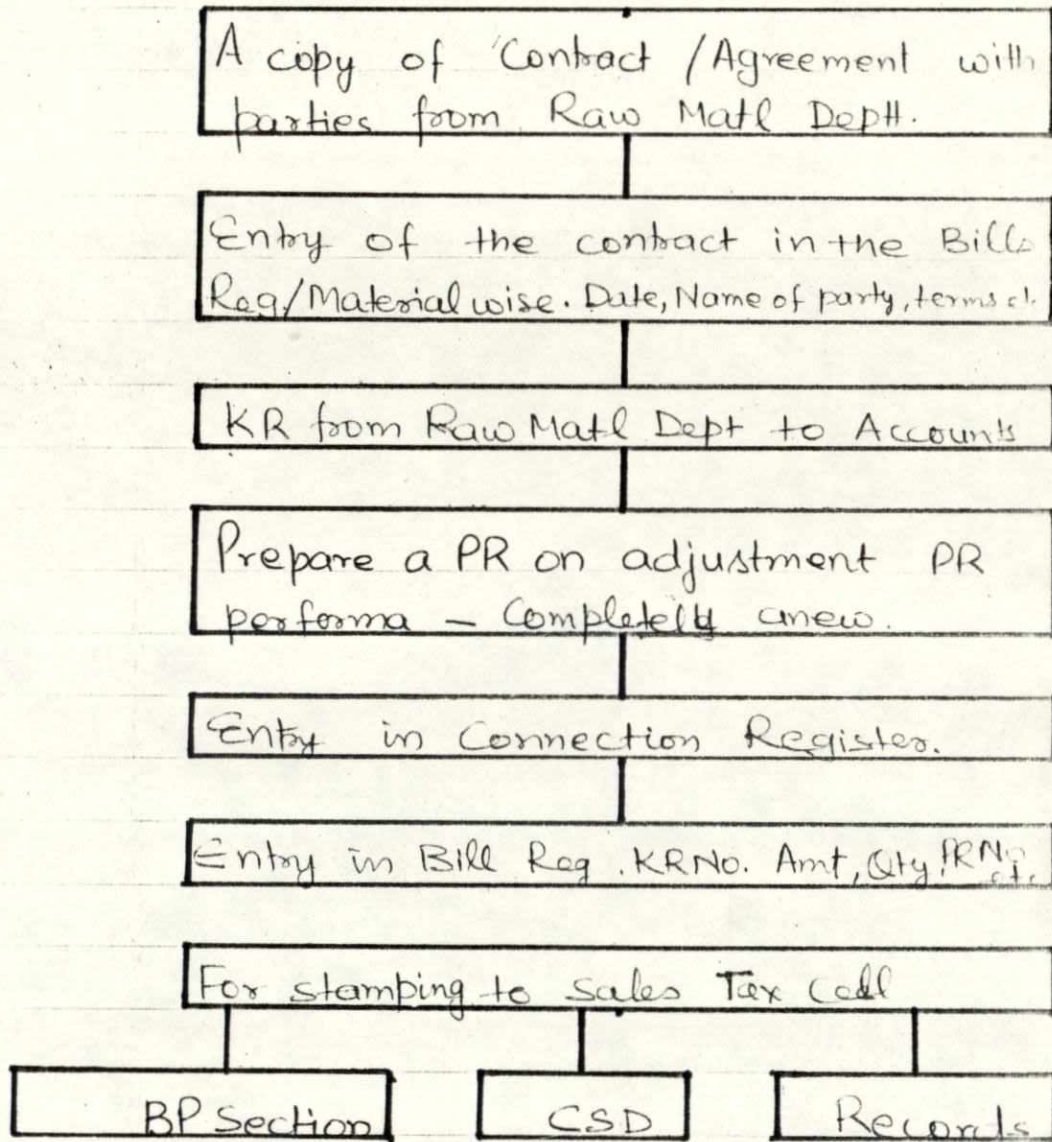 A copy of Contract / Agreement with
parties from Raw Matl Deptt.
Entry of the contract in the Bills
Reg/Material wise. Date, Name of party, terms
KR from Raw Matl Dept to Accounts
Prepare a PR on adjustment PR
performa – Completely anew.
Entry in Connection Register.
Entry in Bill Reg. KR No. Amt, Qty, PR No.
etc.
For stamping to Sales Tax Cell
BP Section
CSD
Records